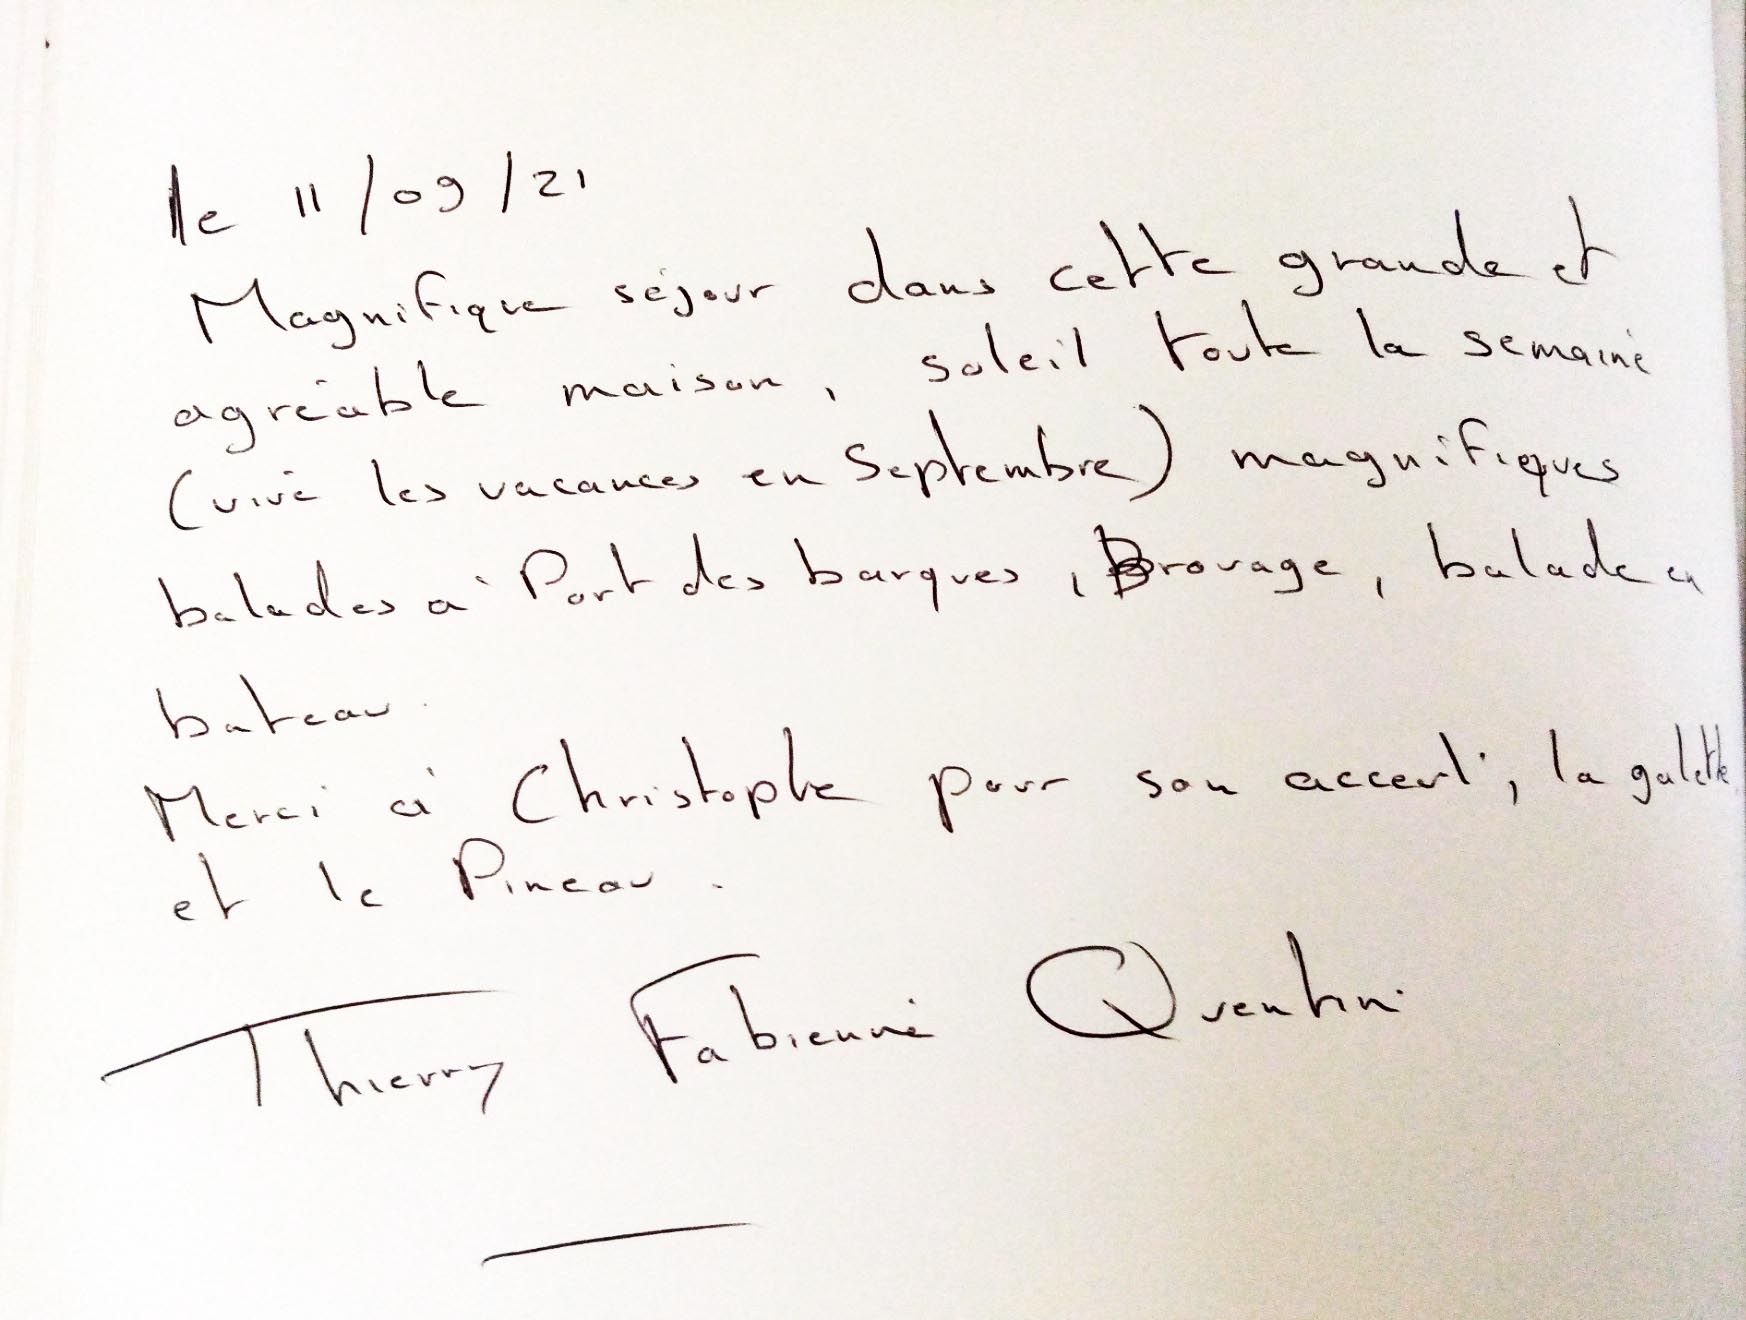 le 11/09/21
Magnifique séjour dans cette grande et
agréable maison, soleil toute la semaine
(vive les vacances en Septembre) magnifiques
balades à Port des barques, Brouage, balade en
bateau.
Merci à Christophe pour son acceuil, la galette
et le Pineau.
Thierry Fabienne Quentin